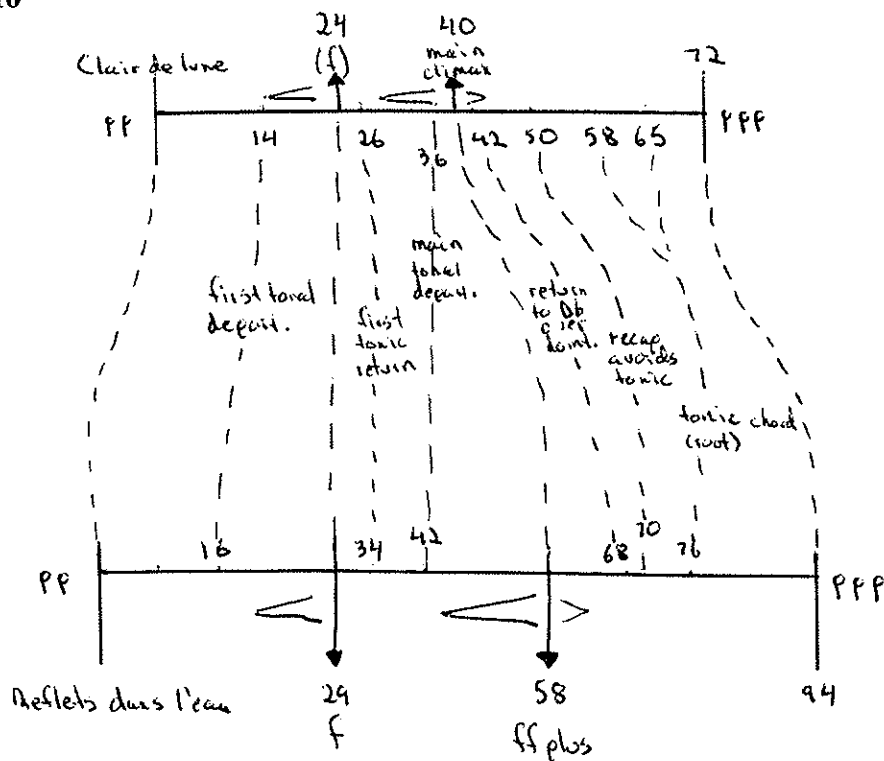 10
24
40
(f)
main
climax
72
Clair de lune
pp
ppp
14
26
36
42
50
58
65
first tonal
depart.
first
tonic
return
main
tonal
depart.
return
to Db
over
point.
recap
avoids
tonic
tonic chord
(root)
16
34
42
68
70
76
pp
ppp
Reflets dans l'eau
29
58
94
f
ff plus